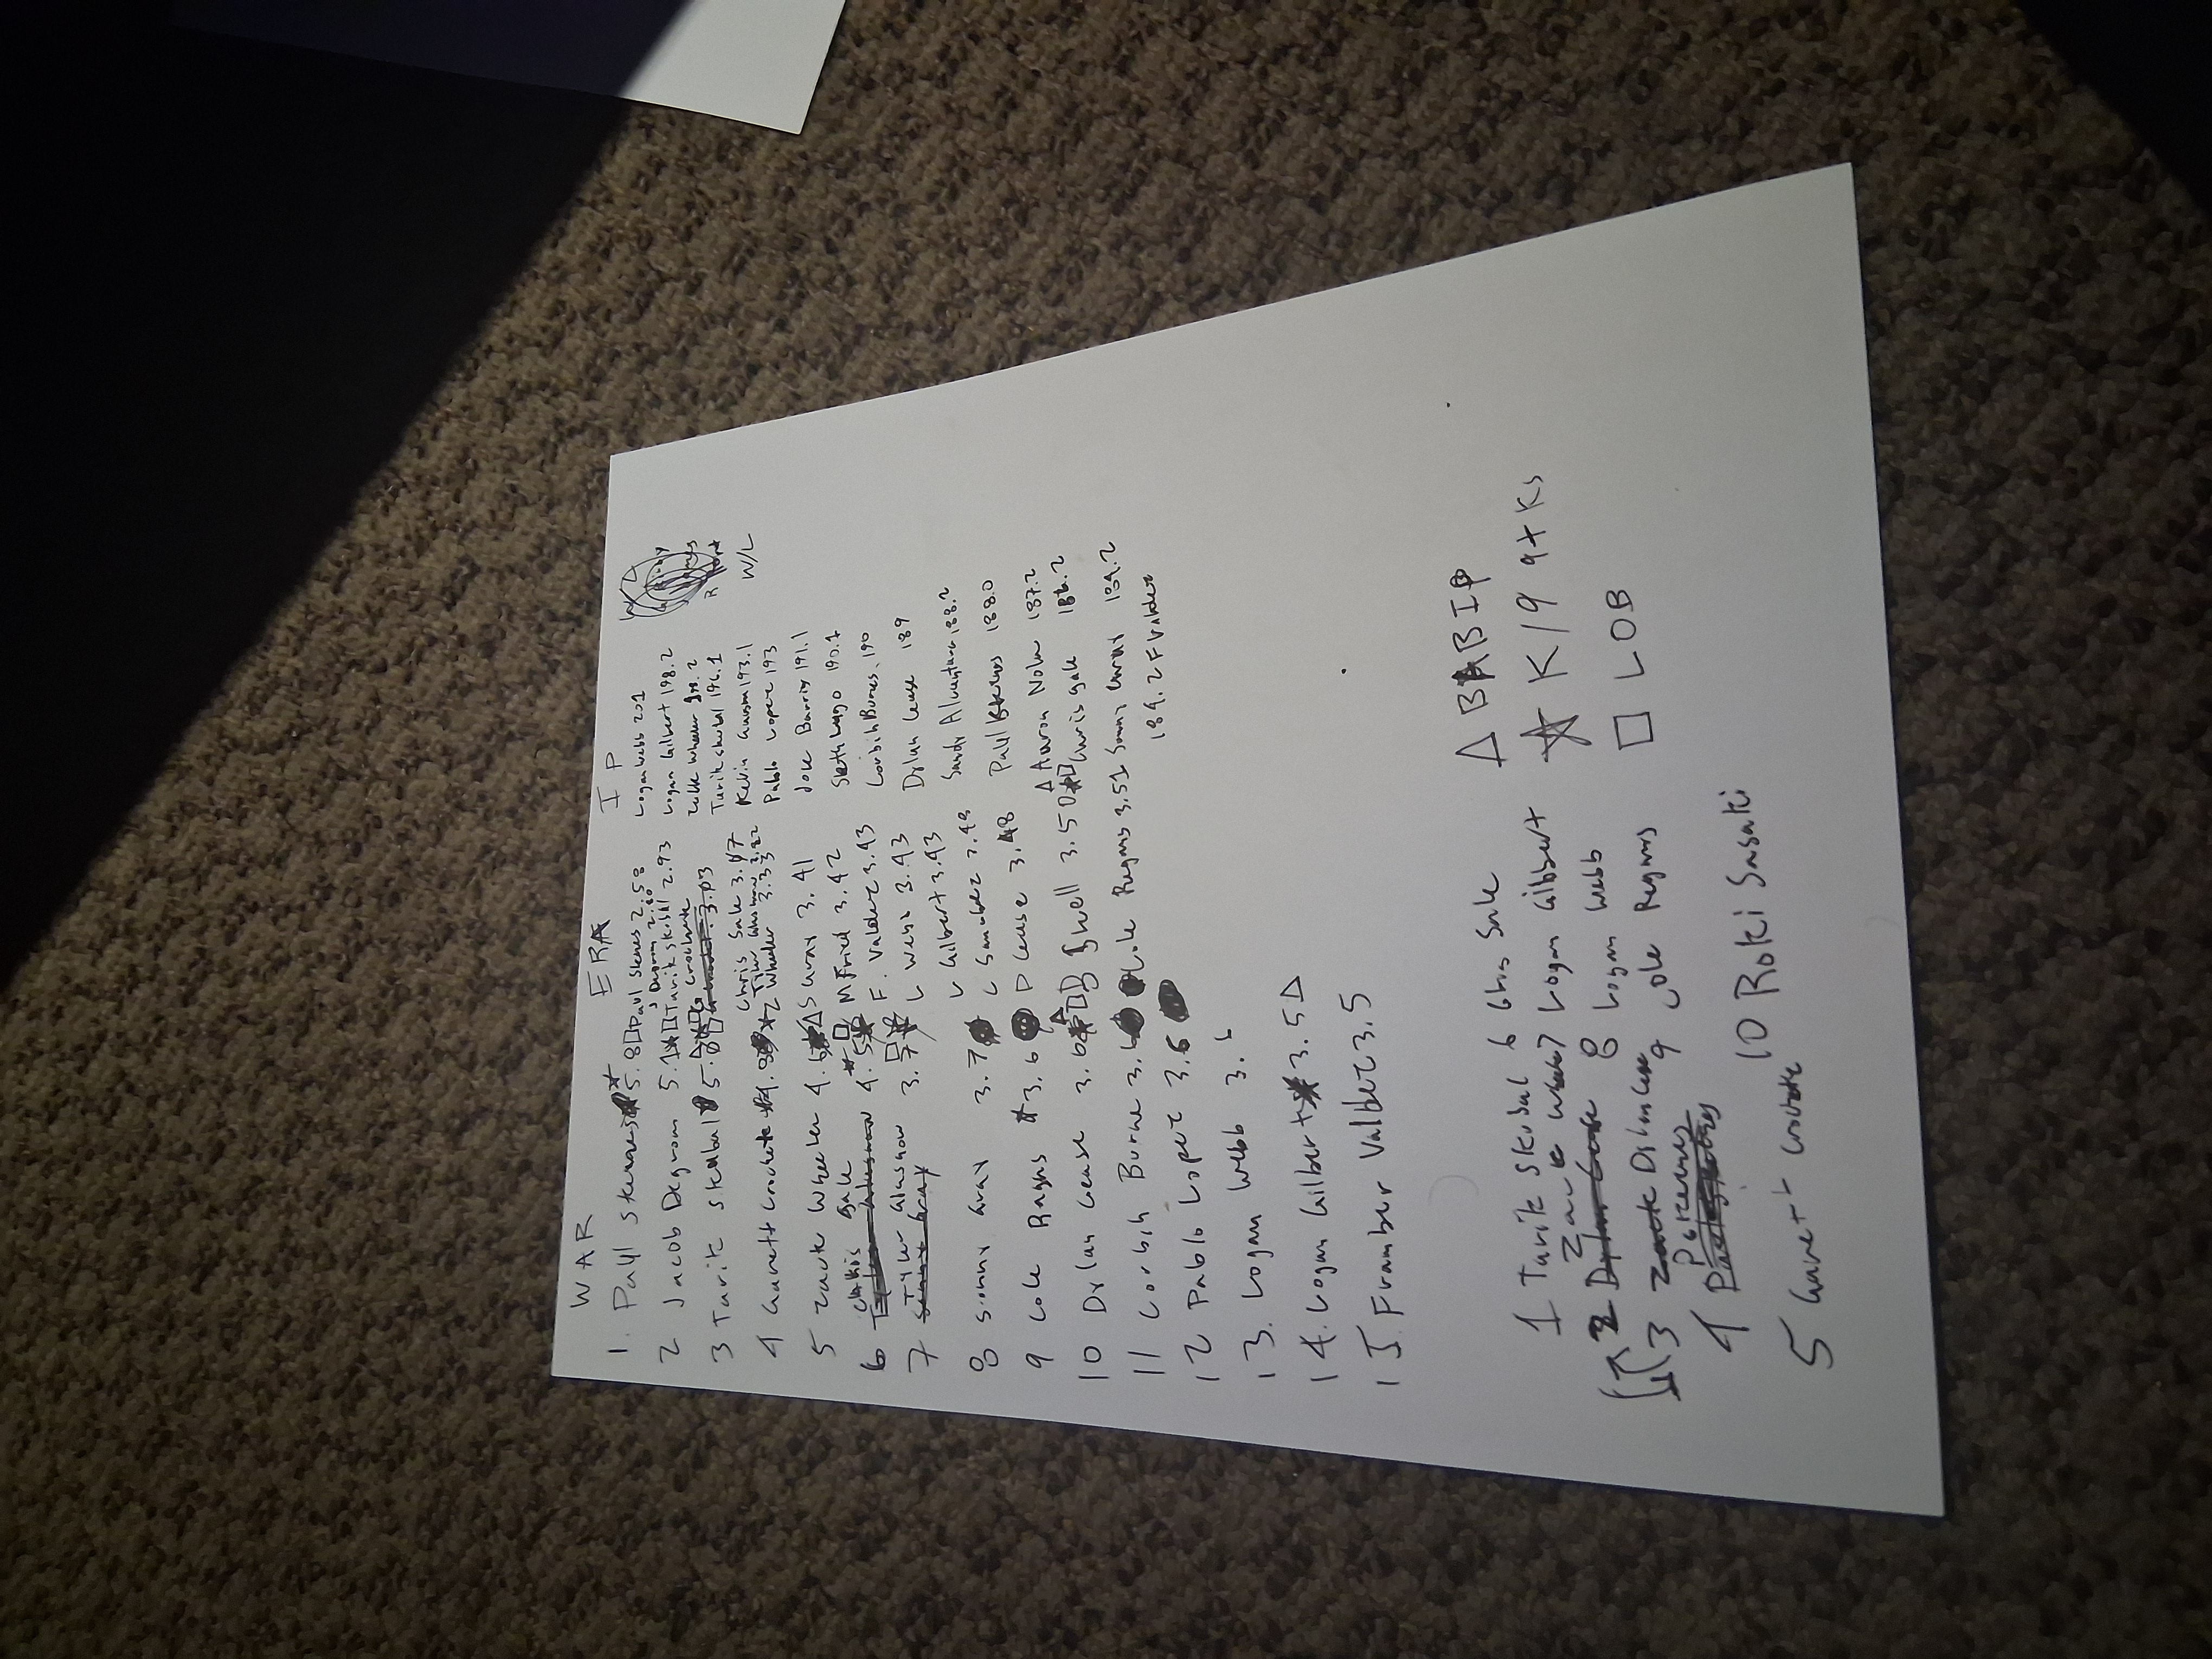 WAR ERA IP
1. Paul Skenes 5.8 Paul Skenes 2.58 Logan Webb 201
2 Jacob Degrom 5.1 Tarik Skubal 2.93 Logan Gilbert 198.2
3 Tarik Skubal 5.0 Tarik Skubal 196.1
4 Garrett Crochet 4.8 Z Wheeler 3.33 Kevin Gausman 193.1
W/L
Pablo Lopez 193
5 Zack Wheeler 4.6 S Gray 3.41 Jose Barrios 191.1
6 Chris Sale 4.5 M Fried 3.42 Seth Lugo 190.1
F. Valdez 3.43 Corbin Burnes 190
7 Tyler Glasnow 3.7 L Webb 3.43 Dylan Cease 189
L Gilbert 3.43 Sandy Alcantara 188.2
8 Sonny Gray 3.7 C Sanchez 3.48 Paul Skenes 188.0
9 Cole Ragans 3.6 D Cease 3.48 Aaron Nola 187.2
10 Dylan Cease 3.6 B Snell 3.50 Chris Sale 186.2
11 Corbin Burne 3.6 Cole Ragans 3.51 Sonny Gray 184.2
12 Pablo Lopez 3.6 184.2 F Valdez
13. Logan Webb 3.6
14. Logan Gilbert 3.5
15. Framber Valdez 3.5
1 Tarik Skubal 6 Chris Sale △ BABIP
2 Zack Wheel 7 Logan Gilbert ☆ K/9 9+ Ks
8 Logan Webb □ LOB
3 Dylan Cease 9 Cole Ragans
4 P Skenes
10 Roki Sasaki
5 Garret Crochet